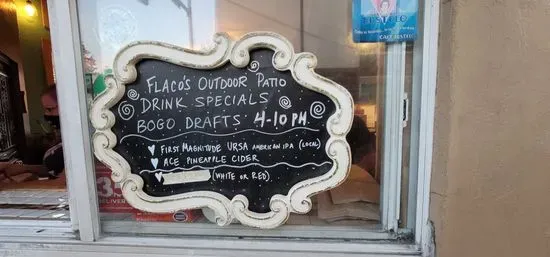 FLACO'S OUTDOOR PATIO
DRINK SPECIALS
BOGO DRAFTS 4-10 PM
FIRST MAGNITUDE URSA AMERICAN IPA (LOCAL)
ACE PINEAPPLE CIDER
(WHITE OR RED)